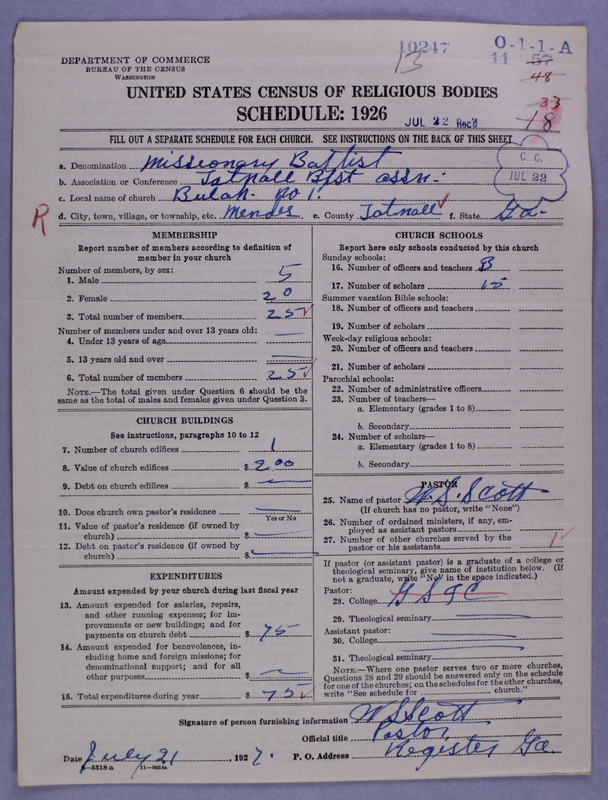 DEPARTMENT OF COMMERCE
BUREAU OF THE CENSUS
WASHINGTON
10247
13
O-1-1-A
11 57
48
33
18
UNITED STATES CENSUS OF RELIGIOUS BODIES
SCHEDULE: 1926
JUL 22 Rec'd
FILL OUT A SEPARATE SCHEDULE FOR EACH CHURCH. SEE INSTRUCTIONS ON THE BACK OF THIS SHEET
C. C.
JUL 22
a. Denomination Missionary Baptist
b. Association or Conference Tatnall Bpst assn.
c. Local name of church Bulah no 1.
R
d. City, town, village, or township, etc. Mendes e. County Tatnall f. State Ga.
MEMBERSHIP
Report number of members according to definition of
member in your church
Number of members, by sex:
1. Male 5
2. Female 20
3. Total number of members 25
Number of members under and over 13 years old:
4. Under 13 years of age
5. 13 years old and over
6. Total number of members 25
NOTE.—The total given under Question 6 should be the
same as the total of males and females given under Question 3.
CHURCH BUILDINGS
See instructions, paragraphs 10 to 12
7. Number of church edifices 1
8. Value of church edifices $ 200
9. Debt on church edifices $
10. Does church own pastor's residence
Yes or No
11. Value of pastor's residence (if owned by
church) $
12. Debt on pastor's residence (if owned by
church) $
EXPENDITURES
Amount expended by your church during last fiscal year
13. Amount expended for salaries, repairs,
and other running expenses; for im-
provements or new buildings; and for
payments on church debt $ 75
14. Amount expended for benevolences, in-
cluding home and foreign missions; for
denominational support; and for all
other purposes $
15. Total expenditures during year $ 75
CHURCH SCHOOLS
Report here only schools conducted by this church
Sunday schools:
16. Number of officers and teachers
17. Number of scholars 15
Summer vacation Bible schools:
18. Number of officers and teachers
19. Number of scholars
Week-day religious schools:
20. Number of officers and teachers
21. Number of scholars
Parochial schools:
22. Number of administrative officers
23. Number of teachers—
a. Elementary (grades 1 to 8)
b. Secondary
24. Number of scholars—
a. Elementary (grades 1 to 8)
b. Secondary
PASTOR
25. Name of pastor W. S. Scott
(If church has no pastor, write "None")
26. Number of ordained ministers, if any, em-
ployed as assistant pastors
27. Number of other churches served by the
pastor or his assistants 1
If pastor (or assistant pastor) is a graduate of a college or
theological seminary, give name of institution below. (If
not a graduate, write "No" in the space indicated.)
Pastor:
28. College G S I C
29. Theological seminary
Assistant pastor:
30. College
31. Theological seminary
NOTE.—Where one pastor serves two or more churches,
Questions 28 and 29 should be answered only on the schedule
for one of the churches; on the schedules for the other churches,
write "See schedule for church."
Signature of person furnishing information W S Scott
Official title Pastor
Date July 21, 1927. P. O. Address Register Ga.
8—5518a 11—9064a